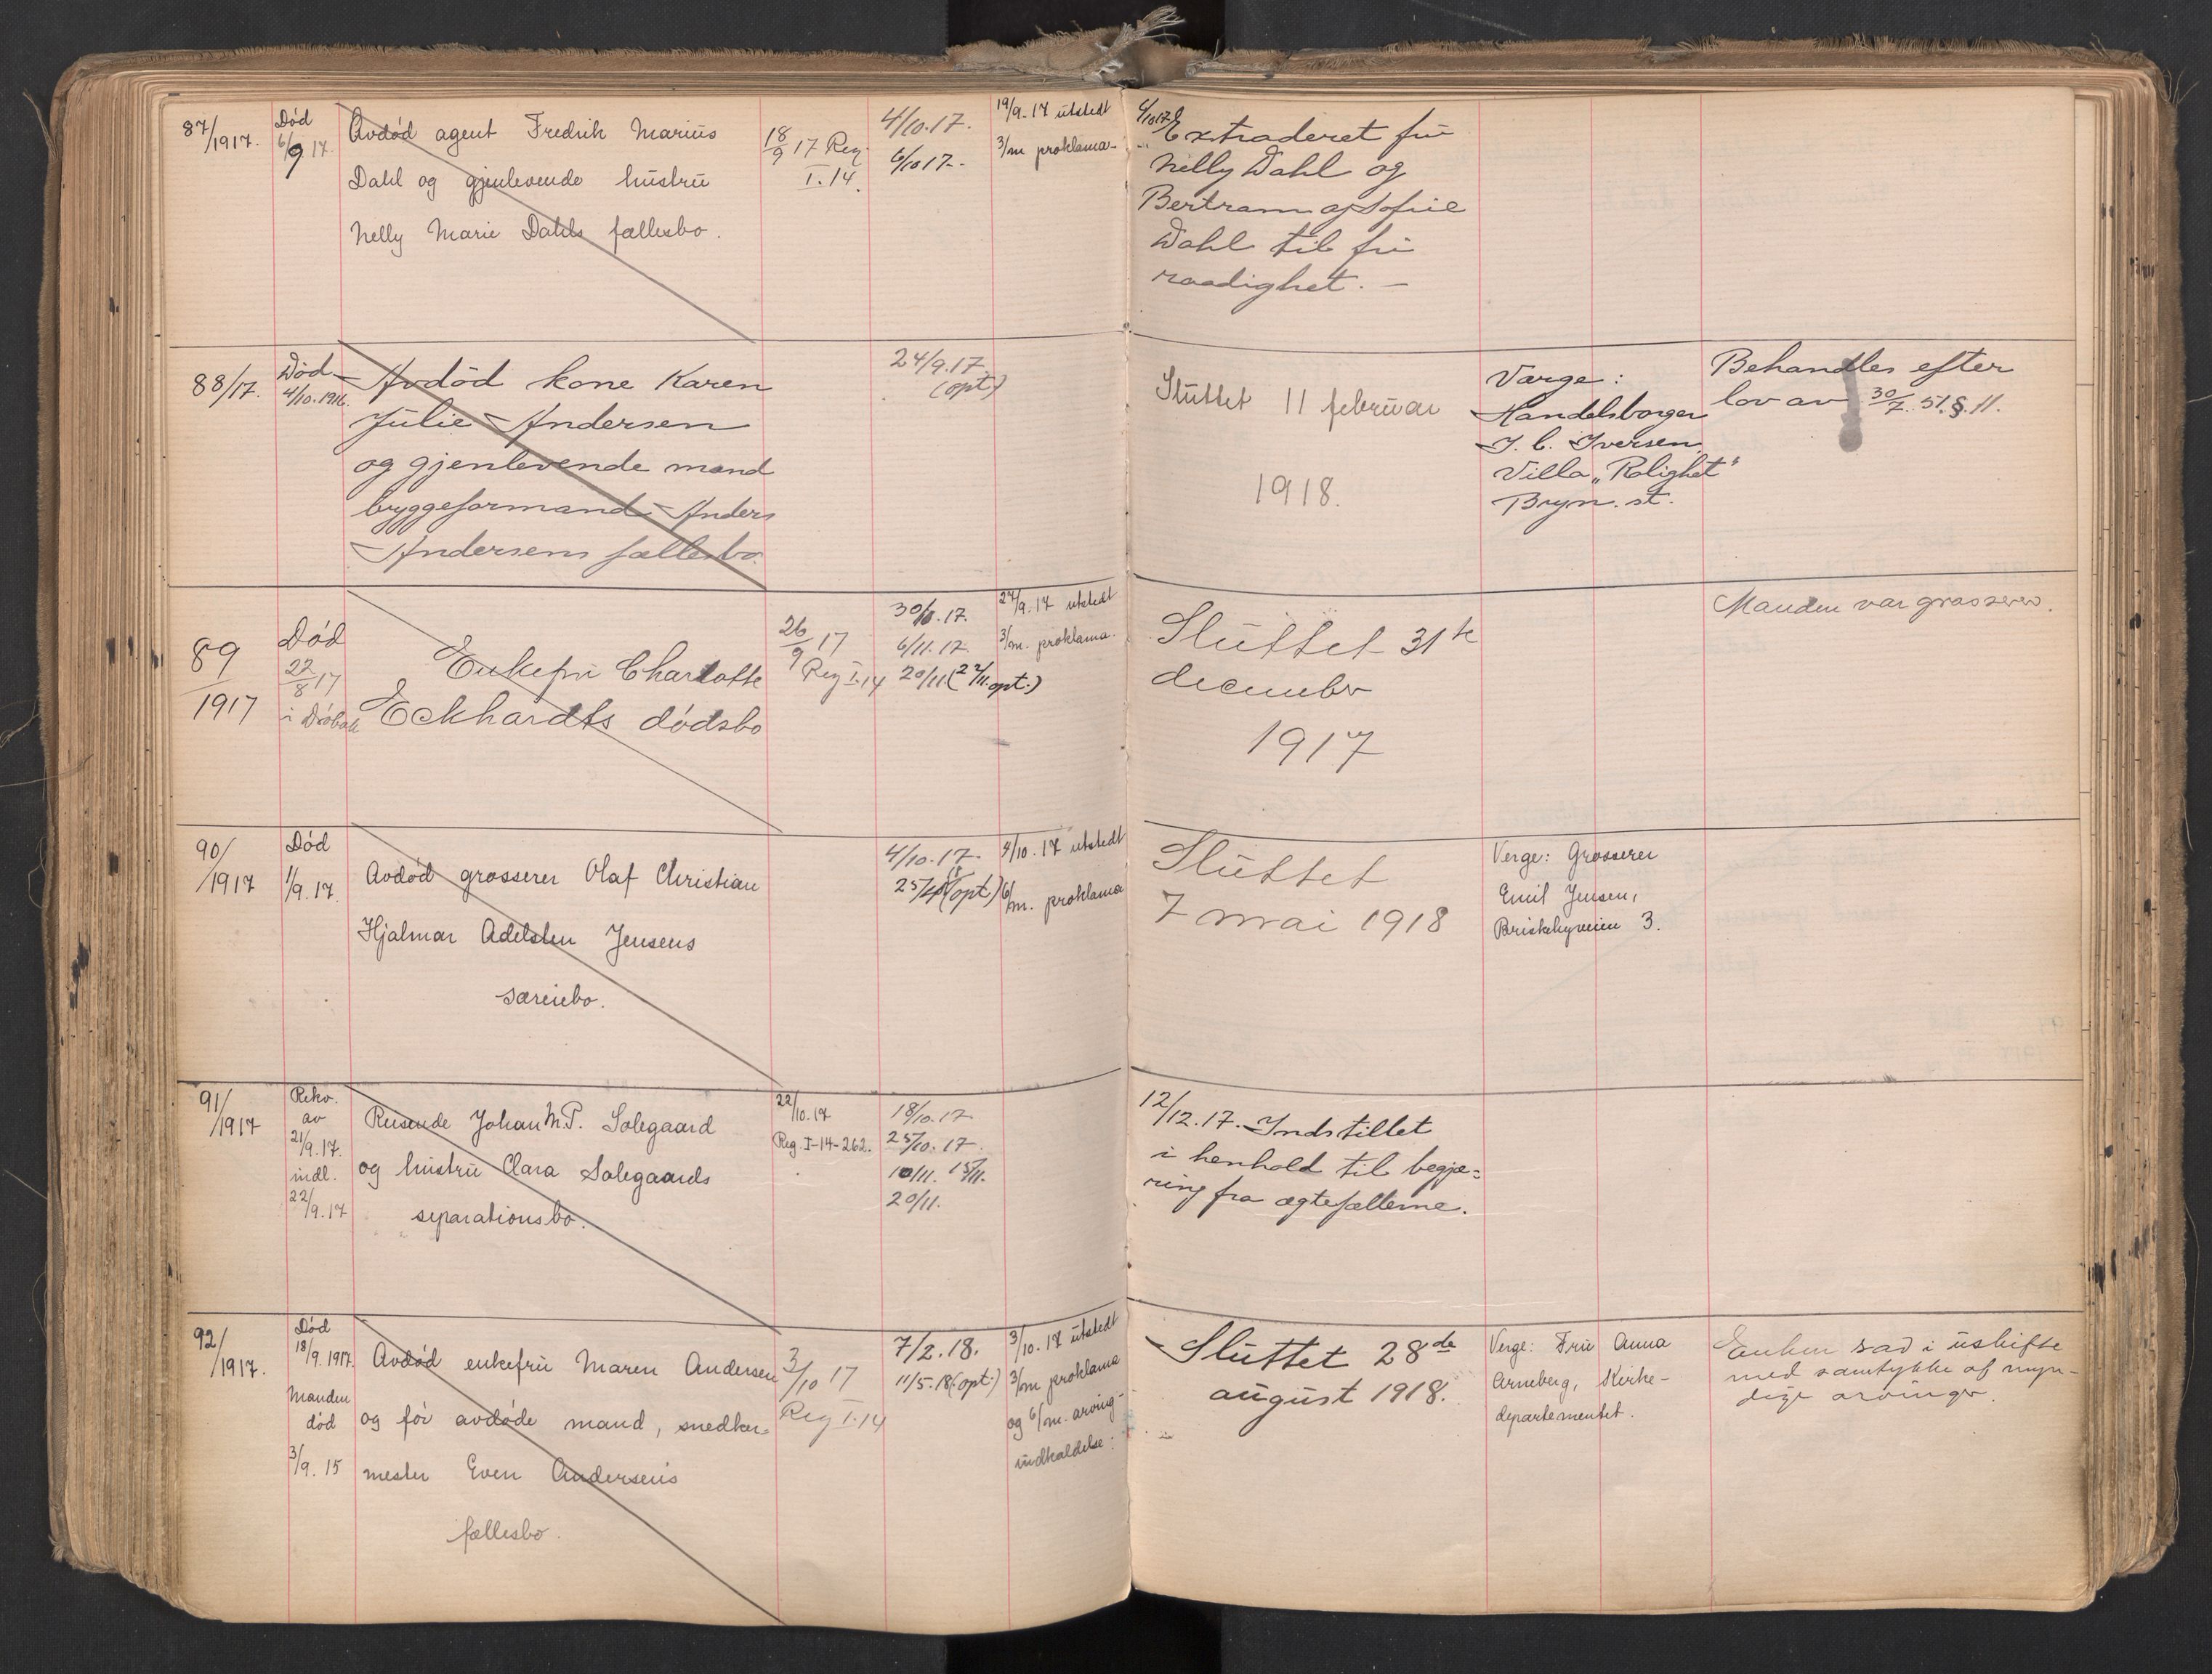 87/1917.
Død
6/9 17.
Avdød agent Fredrik Marius
Dahl og gjenlevende hustru
Nelly Marie Dahls fællesbo.
18/9 17 Reg.
I. 14.
4/10. 17.
6/10 17.-
19/9. 17 utstedt
3/m proklama-
6/10 17 Extraderet fru
Nelly Dahl og
Bertram og Sofie
Dahl til fri
raadighet. -
88/17.
Død
4/10. 1916.
Avdød kone Karen
Julie Andersen
og gjenlevende mand
byggeformand Anders
Andersens fællesbo.
24/9. 17.
(opt.)
Sluttet 11 februar
1918.
Værge:
Handelsborger
I. C. Iversen,
Villa „Rolighet"
Bryn. st.
Behandles efter
lov av 30/7. 51. §. 11.
89/1917
Død
22/8 17
i Drøbak
Enkefru Charlotte
Eckhardts dødsbo
26/9 17
Reg I. 14
30/10. 17.
6/11. 17.
20/11 (22/11. opt.)
27/9. 17 utstedt
3/m. proklama.
Sluttet 31te
december
1917
Manden var grosserer.
90/1917
Død
1/9. 17.
Avdød grosserer Olaf Christian
Hjalmar Adelsten Jensens
særeiebo.
4/10. 17.
25/4 18 (opt.)
4/10. 17 utstedt
6/m. proklama
Sluttet
7 mai 1918
Verge: Grosserer
Emil Jensen,
Briskebyveien 3.
91/1917
Rekv.
av
21/9. 17.
indl.
22/9. 17
Reisende Johan M. P. Solegaard
og hustru Clara Solegaards
separationsbo.
22/10. 17
Reg. I-14-262.
18/10. 17
25/10. 17.
10/11. 15/11.
20/11.
12/12. 17. Indstillet
i henhold til begjæ=
ring fra ægtefællerne.
92/1917.
Død
18/9. 1917.
Manden
død
3/9. 15
Avdød enkefru Maren Andersen
og før avdøde mand, snedker=
mester Even Andersens
fællesbo.
3/10 17
Reg I. 14
7/2. 18.
11/5. 18 (opt.)
3/10. 17 utstedt
3/m proklama
og 6/m. arving-
indkaldelse.
Sluttet 28de
august 1918.
Verge: Fru Anna
Arneberg, Kirke-
departementet.
Enken sad i uskifte
med samtykke af myn-
dige arvinger.